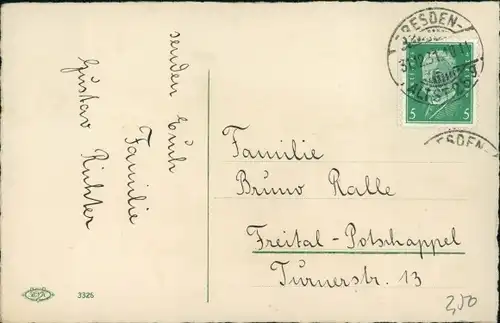 senden Euch
Familie
Gustav Richter
Familie
Bruno Ralle
Freital-Potschappel
Turnerstr. 13
DRESDEN-
ALTST.
5 5
ESDEN-
3326
2,50